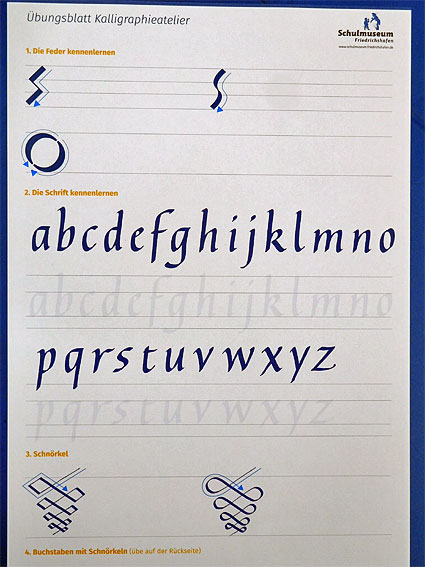 Übungsblatt Kalligraphieatelier
Schulmuseum
Friedrichshafen
www.schulmuseum-friedrichshafen.de
1. Die Feder kennenlernen
2. Die Schrift kennenlernen
abcdefghijklmno
abcdefghijklmno
pqrstuvwxyz
pqrstuvwxyz
3. Schnörkel
4. Buchstaben mit Schnörkeln (übe auf der Rückseite)